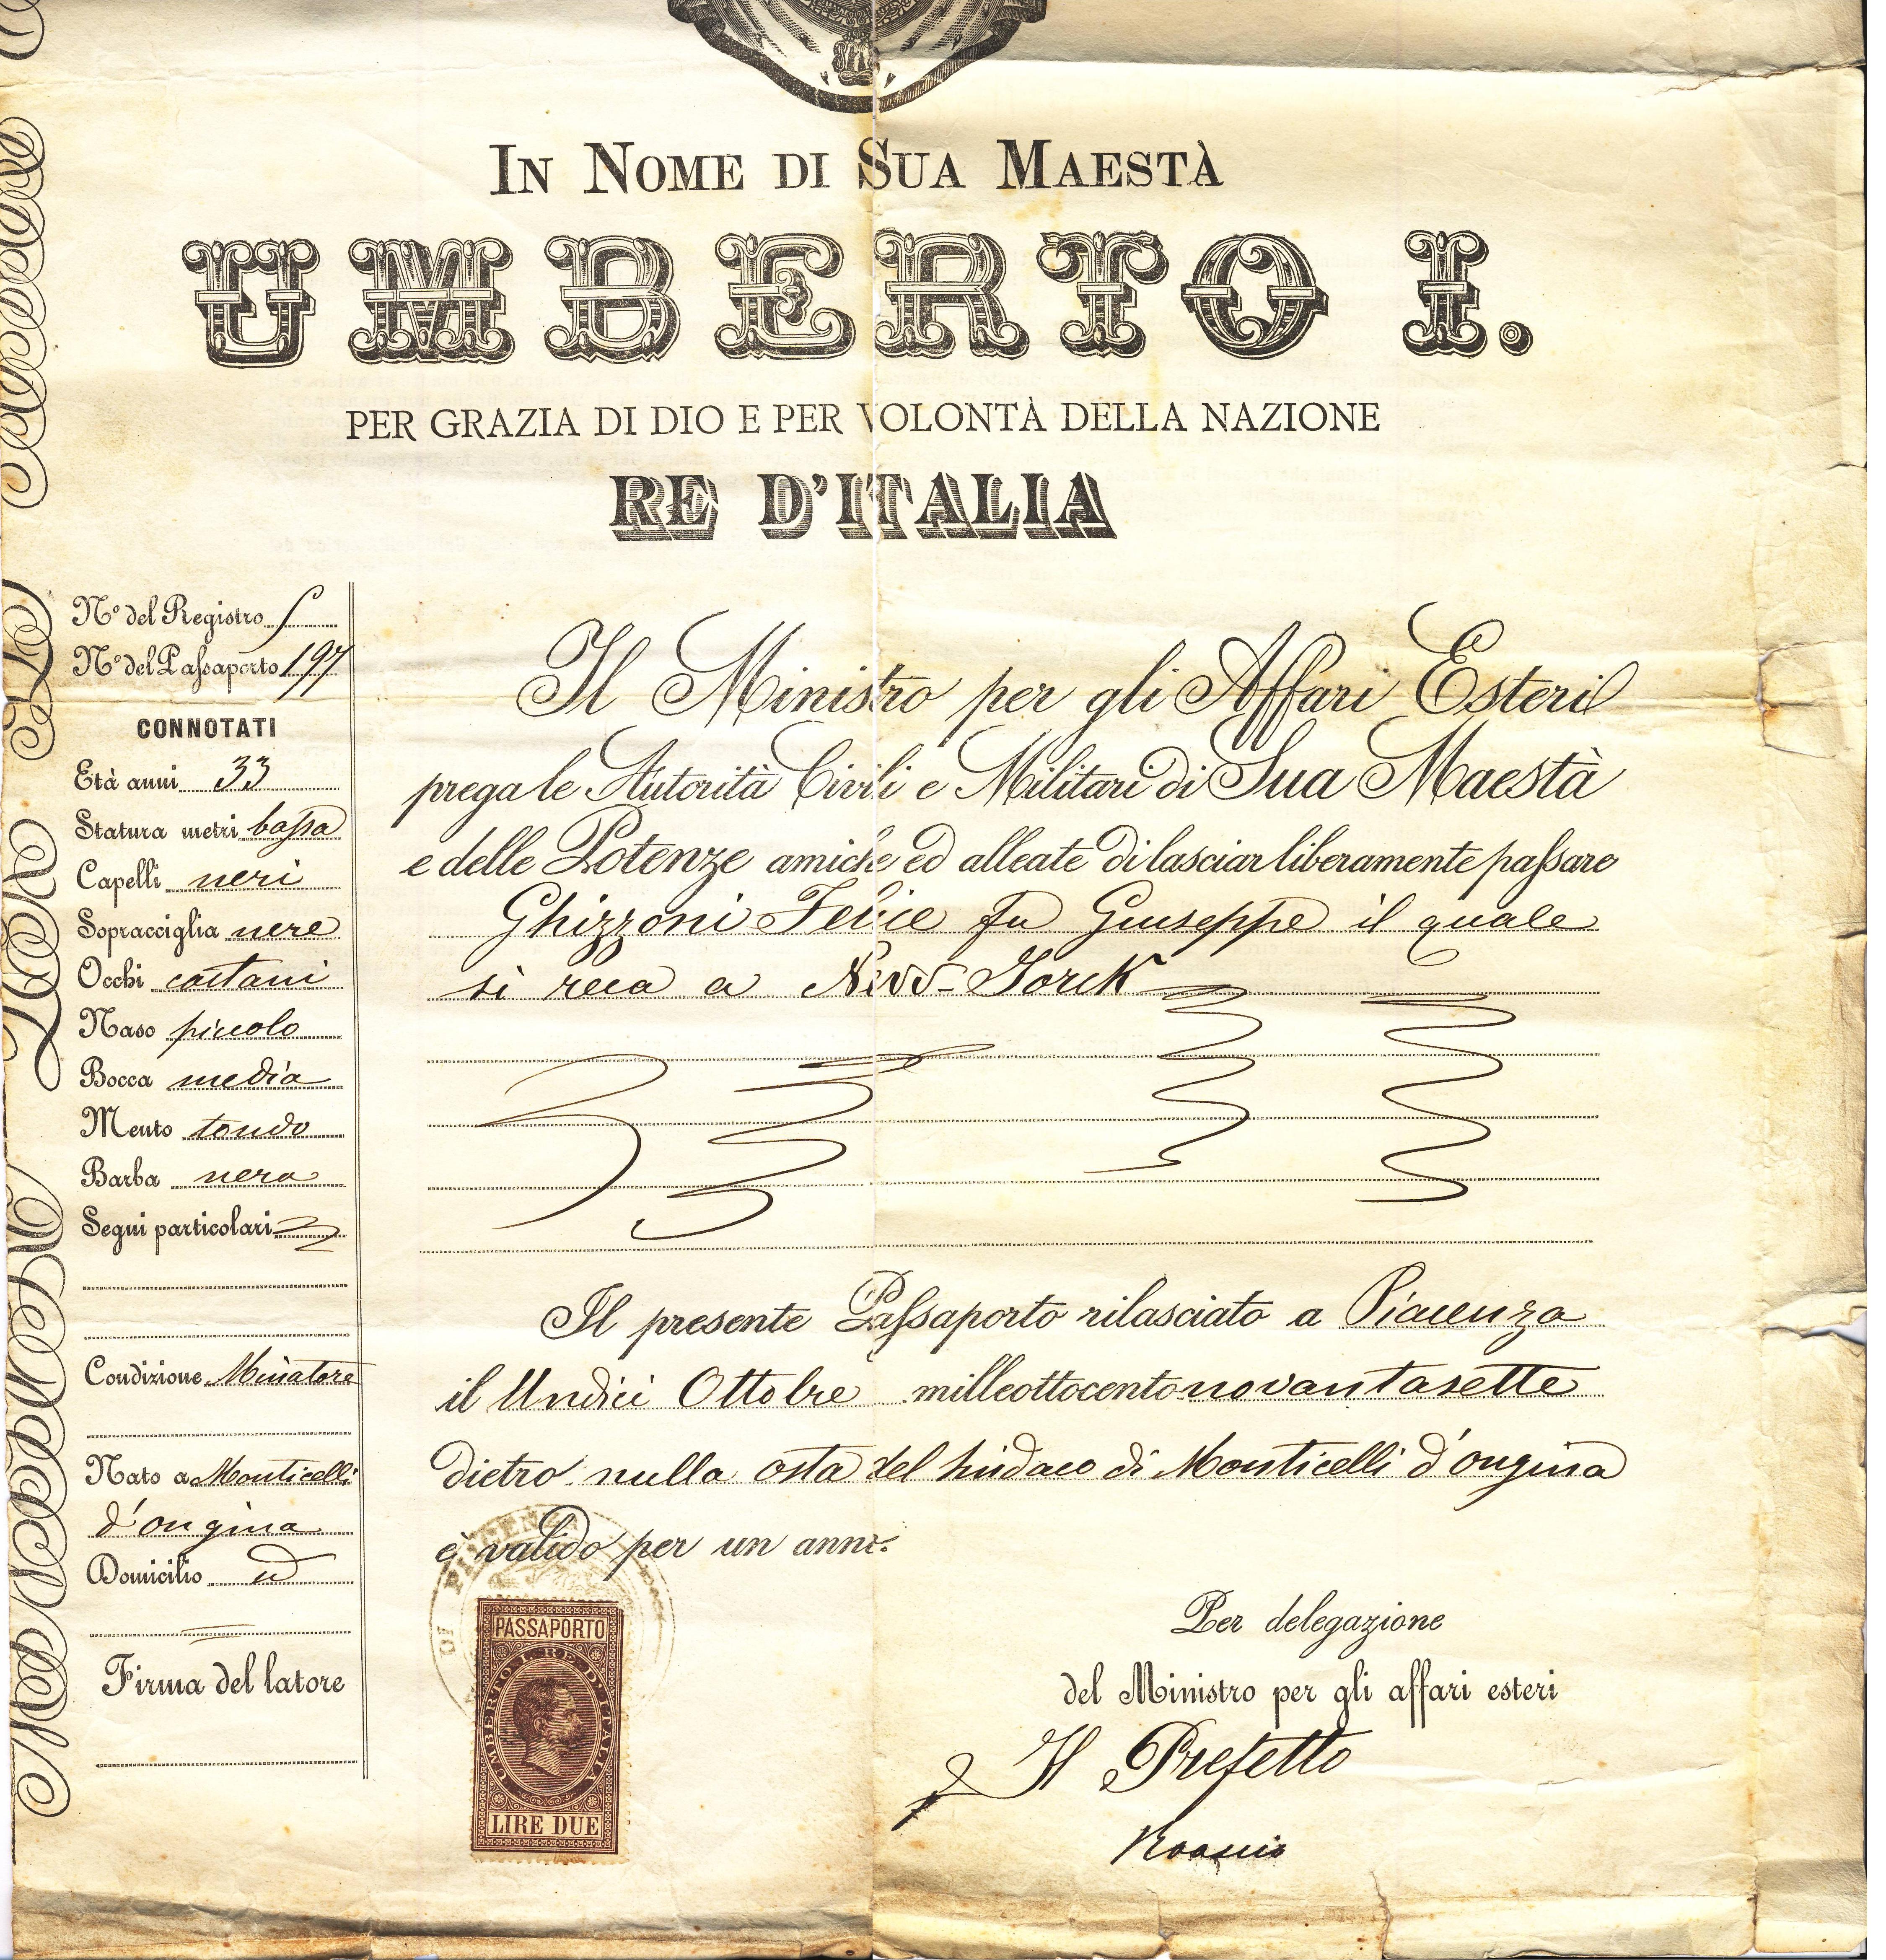 IN NOME DI SUA MAESTÀ
UMBERTO I.
PER GRAZIA DI DIO E PER VOLONTÀ DELLA NAZIONE
RE D'ITALIA
Nº del Registro
Nº del Passaporto 197
CONNOTATI
Età anni 33
Statura metri bassa
Capelli neri
Sopracciglia nere
Occhi castani
Naso piccolo
Bocca media
Mento tondo
Barba nera
Segni particolari
Condizione Minatore
Nato a Monticelli
d'ongina
Domicilio
Firma del latore
Il Ministro per gli Affari Esteri
prega le Autorità Civili e Militari di Sua Maestà
e delle Potenze amiche ed alleate di lasciar liberamente passare
Ghizzoni Felice fu Giuseppe il quale
si reca a New-Jorck
Il presente Passaporto rilasciato a Piacenza
il Undici Ottobre milleottocentonovantasette
dietro nulla osta del sindaco di Monticelli d'ongina
è valido per un anno.
PASSAPORTO
UMBERTO I. RE D'ITALIA
LIRE DUE
Per delegazione
del Ministro per gli affari esteri
Il Prefetto